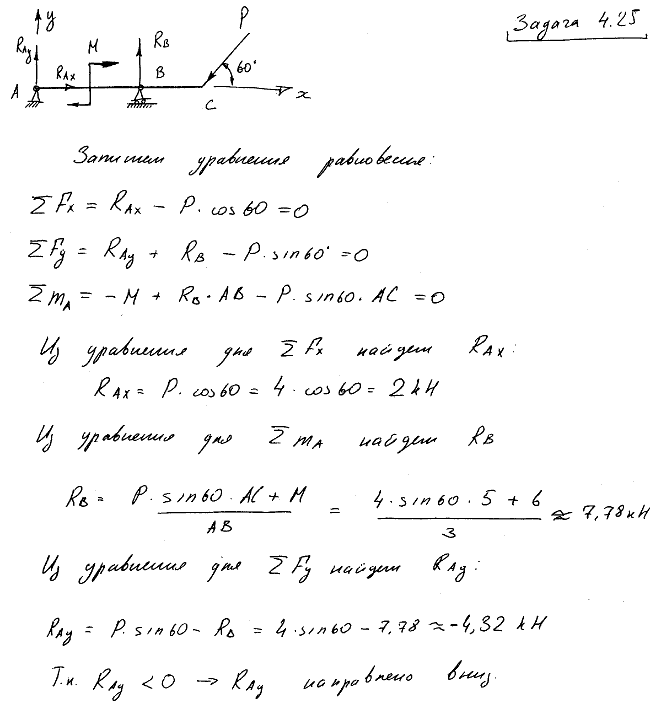 Задача 4.25
y
P
R_Ay
M
R_B
R_Ax
60°
A
B
C
x
Запишем уравнения равновесия:
ΣFx = R_Ax − P·cos60 = 0
ΣFy = R_Ay + R_B − P·sin60° = 0
Σm_A = −M + R_B·AB − P·sin60·AC = 0
Из уравнения для ΣFx найдем R_Ax:
R_Ax = P·cos60 = 4·cos60 = 2кН
Из уравнения для Σm_A найдем R_B
R_B = (P·sin60·AC + M)/AB = (4·sin60·5 + 6)/3 ≈ 7,78кН
Из уравнения для ΣFy найдем R_Ay:
R_Ay = P·sin60 − R_B = 4·sin60 − 7,78 ≈ −4,32 кН
Т.к. R_Ay < 0 → R_Ay направлено вниз.